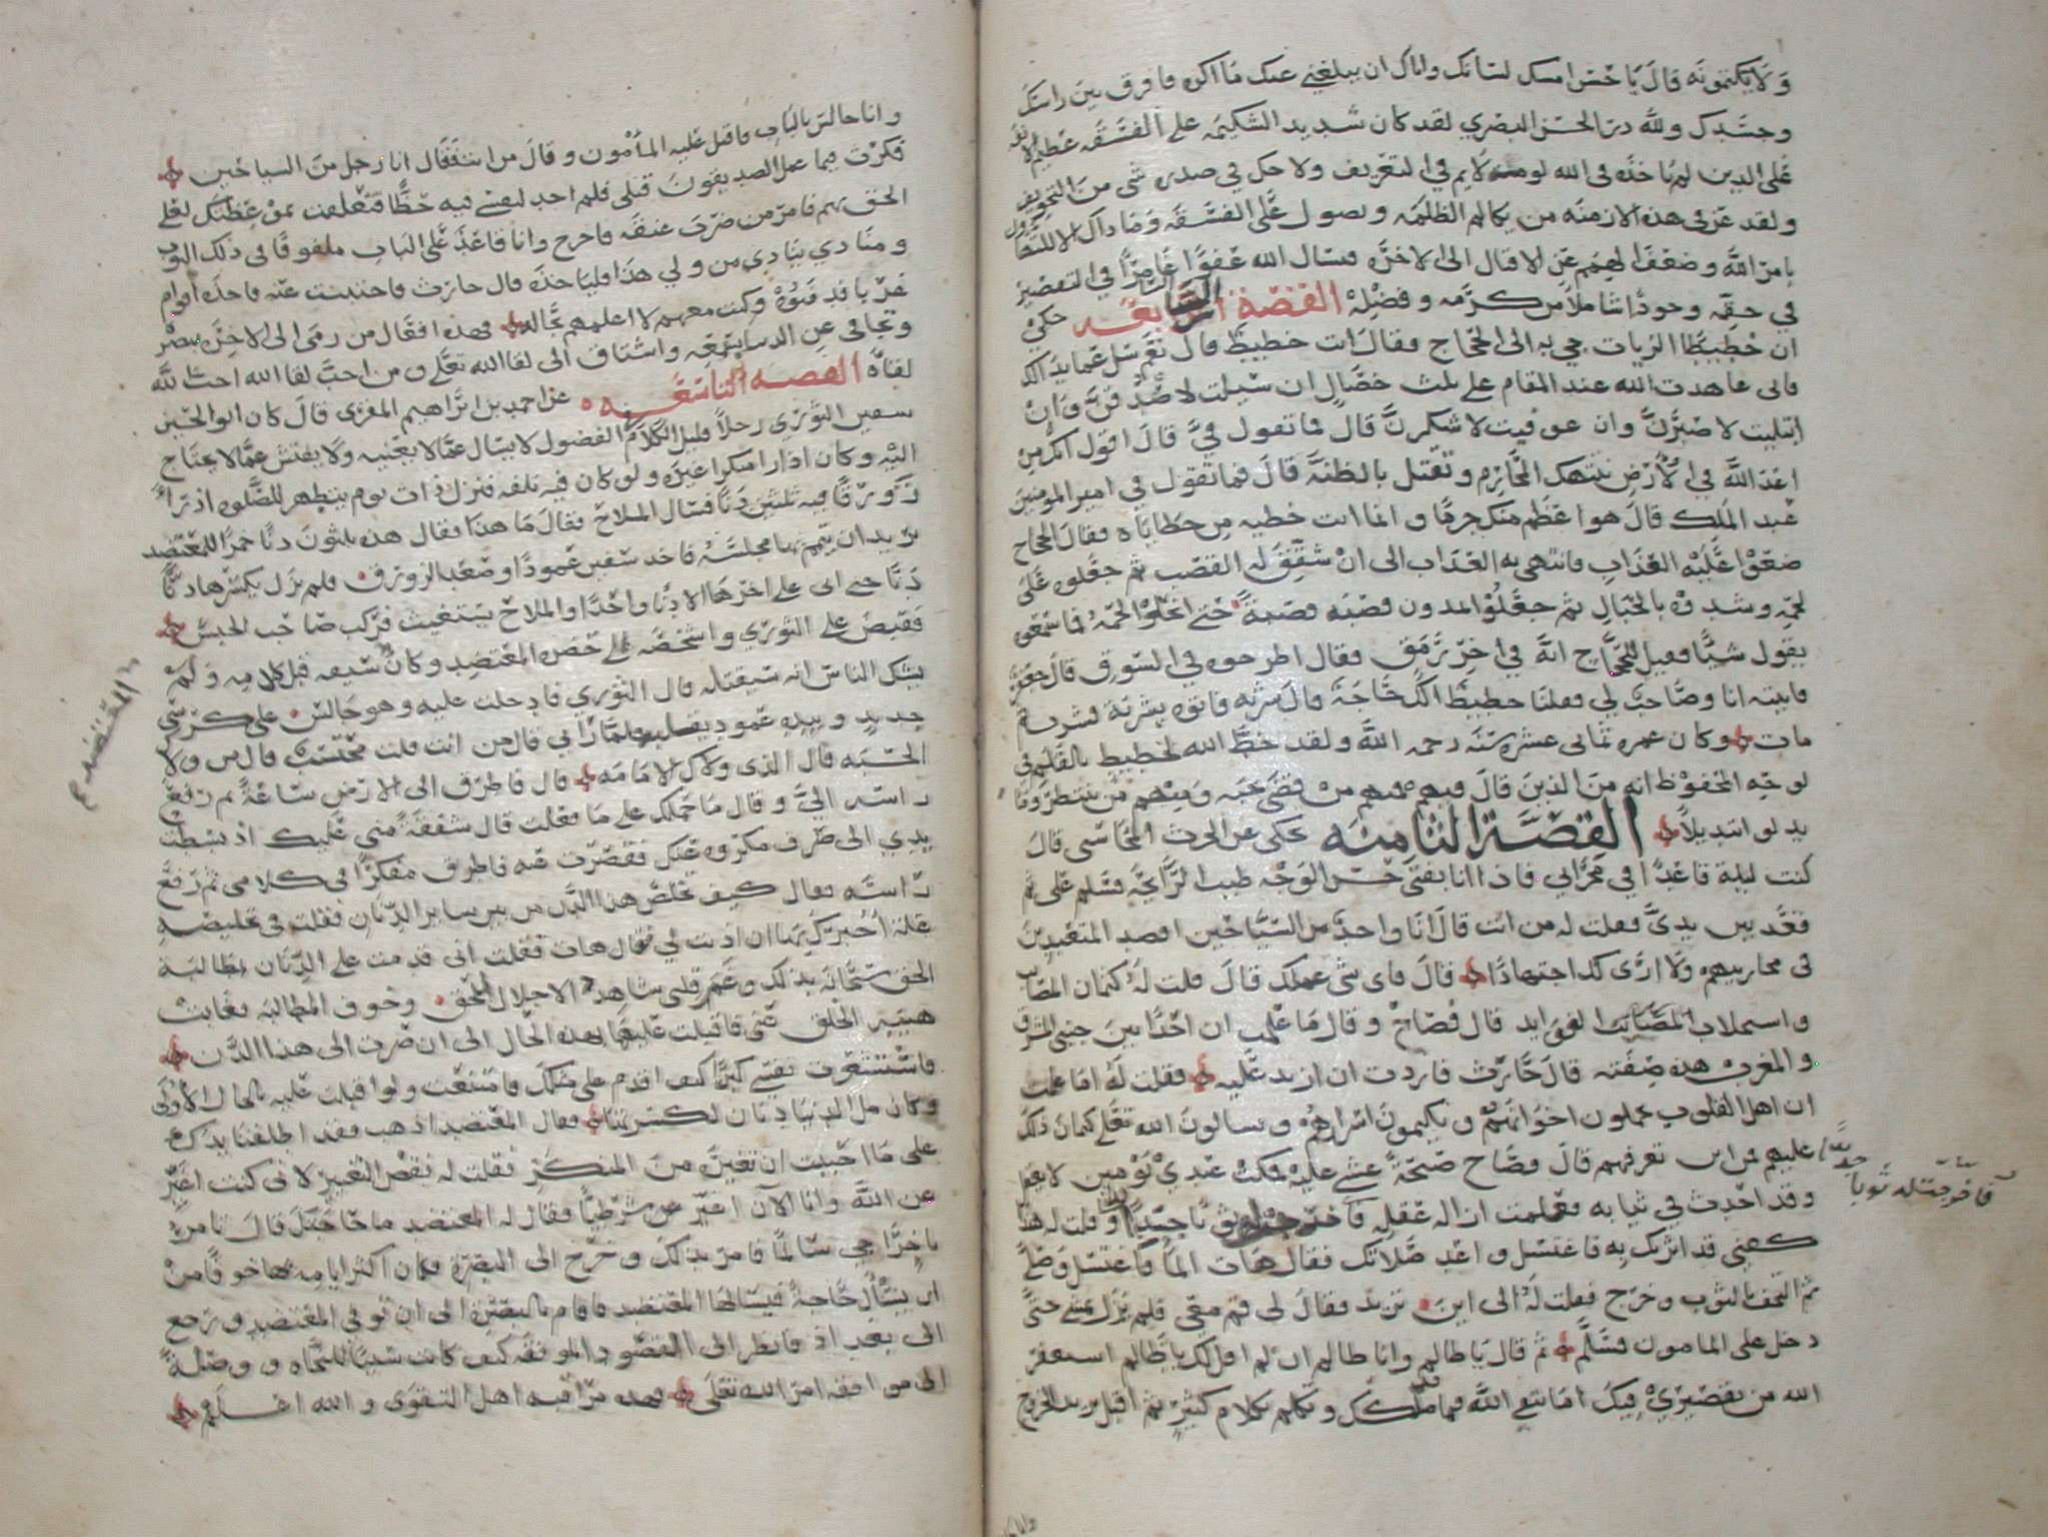 ولا يكتمونه قال يا حسن امسك لسانك واياك ان يبلغني عنك ما اكره فافرق بين راسك
وجسدك ولله در الحسن البصري لقد كان شديد الشكيمه على الفسقه عظيم
على الدين لم ياخذه في الله لومة لايم في التعريف ولا حل في صدره شي من التخويف
ولقد عز في هذه الازمنه من يكالم الظلمه ويصول على الفسقه وما ذاك الا
بامر الله وضعف الهمم عن الاقبال الى الاخره فنسال الله عفوا غامرا في التقصير
في حقه وجودا شاملا من كرمه وفضله القصة السابعه حكي
ان حطيطا الزيات جي به الى الحجاج فقال انت حطيط قال نعم سل عما بدا لك
فاني عاهدت الله عند المقام على ثلث خصال ان سيلت لاصدقن وان
ابتليت لاصبرن وان عوفيت لاشكرن قال فما تقول في قال اقول انك من
اعدا الله في الارض تنتهك المحارم وتقتل بالظنة قال فما تقول في امير المومنين
عبد الملك قال هو اعظم منك جرما وانما انت خطيه من خطاياه فقال الحجاج
ضعوا عليه العذاب فانتهى به العذاب الى ان شقق له القصب ثم جعلوه على
لحمه وشدوه بالحبال ثم جعلوا يمدون قصبه قصبة حتى انحلوا لحمه فما سمعوه
يقول شيا فقيل للحجاج انه في اخر رمق فقال اطرحوه في السوق قال جعفر
فاتيته انا وصاحب لي فقلنا حطيط الك حاجة قال شربه فاتوه بشربة فشرب ثم
مات وكان عمره ثماني عشره سنه رحمه الله ولقد خط الله لحطيط بالقلم في
لوحه المحفوظ انه من الذين قال فيهم فمنهم من قضى نحبه ومنهم من ينتظر وما
بدلوا تبديلا القصة الثامنه حكى عن الحرث المحاسبي قال
كنت ليلة قاعدا في محرابي فاذا انا بفتى حسن الوجه طيب الرايحة فسلم على ثم
قعد بين يدي فقلت له من انت قال انا واحد من السياحين اقصد المتعبدين
في محاريبهم ولا ارى لك اجتهادا قال فاي شي عملك قال قلت له كتمان المصايب
واستجلاب الفوايد قال فصاح وقال ما علمت ان احدا بين جنبي المشرق
والمغرب هذه صفته قال حارث فاردت ان ازيد عليه فقلت له اما علمت
ان اهل القلوب يخفون احوالهم ويكتمون اسرارهم ويسالون الله تعلى كتمان ذلك
عليهم فمن اين تعرفهم قال فصاح صيحة غشي عليه فمكث عندي يومين لا يعقل
وقد احدث في ثيابه فعلمت ازالة عقله فاخرجت له ثوبا جديدا وقلت له هذا
كفني قد اثرتك به فاغتسل واعد صلاتك فقال هات الما فاغتسل وصلى
ثم التحف بالثوب وخرج فقلت له الى اين تريد فقال لي قم معي فلم يزل يمشي حتى
دخل على المامون فسلم ثم قال يا ظالم وانا ظالم ان لم اقل لك يا ظالم استغفر
الله من تقصيري فيك اما تتقي الله فيما ملكك وتكلم بكلام كثير ثم اقبل يريد الخروج
فاخرجت له ثوبا جديدا
وانا جالس بالباب فاقبل عليه المامون وقال من انت فقال انا رجل من السياحين
فكرت فيما عمل الصديقون قبلي فلم اجد لنفسي فيه حظا فتعلقت بموعظتك لعلي
الحق بهم فامر من ضرب عنقه فاخرج وانا قاعد على الباب ملفوفا في ذلك الثوب
ومنادي ينادي من ولي هذا فلياخذه قال حارث فاختبيت عنه فاخذه اقوام
غربا فدفنوه وكنت معهم لا اعلمهم بحاله فهذه افعال من رمى الى الاخره ببصره
وتجافى عن الدنيا واشتاق الى لقا الله تعلى ومن احب لقا الله احب الله
لقاه القصه التاسعه عن احمد بن ابراهيم المقري قال كان ابو الحسين
سفين الثوري رجلا قليل الكلام الفضول لا يسال عما لا يعنيه ولا يفتش عما لا يحتاج
اليه وكان اذا راى منكرا غيره ولو كان فيه تلفه فنزل ذات يوم يتطهر للصلوه اذ راى
زورقا فيه ثلثين دنا فسال الملاح فقال ما هذا فقال هذه ثلثون دنا خمرا للمعتضد
يريد ان يتمم بها مجلسه فاخذ سفين عمودا وصعد الزورق فلم يزل يكسرها دنا
دنا حتى اتى على اخرها الا دنا واحدا والملاح يستغيث فركب صاحب الجسر
فقبض على الثوري واشخصه الى حضره المعتضد وكان سيفه قبل كلامه ولم
يشك الناس انه سيقتله قال الثوري فادخلت عليه وهو جالس على كرسي
حديد وبيده عمود يقلبه فلما راني قال من انت قلت محتسب قال من ولاك
الحسبه قال الذي ولاك الامامه قال فاطرق الى الارض ساعة ثم رفع
راسه الي وقال ما حملك على ما فعلت قال شفقة مني عليك اذ بسطت
يدي الى صرف مكروه عنك فقصرت عنه فاطرق مفكرا في كلامي ثم رفع
راسه فقال كيف تخلص هذا الدن من بين ساير الدنان فقلت في تخليصه
علة اخبرك بها ان اذنت لي فقال هات فقلت اني قدمت على الدنان بمطالبة
الحق سبحانه بذلك وغمر قلبي شاهد الاجلال للحق وخوف المطالبة فغابت
هيبة الخلق عني فاقبلت عليها بهذه الحال الى ان صرت الى هذا الدن
فاستشعرت نفسي كبرا كيف اقدم على مثلك فامتنعت ولو اقبلت عليه بالحال الاولى
وكان مل الدنيا دنان لكسرتها فقال المعتضد اذهب فقد اطلقنا يدك
على ما احببت ان تغيره من المنكر فقلت له نقض التغيير لاني كنت اغير
عن الله وانا الان اغير عن شرطيا فقال له المعتضد ما حاجتك قال تامر
باخراجي سالما فامر بذلك وخرج الى البصرة فكان اكثر ايامه بها خوفا من
ان يسال حاجة فيسالها المعتضد فاقام بالبصرة الى ان توفي المعتضد ورجع
الى بغداد فانظر الى القصود الموفقه كيف كانت سببا للنجاه ووصلة
الى موافقه امر الله تعلى فهذه مراقبه اهل التقوى والله اعلم
المعتضد